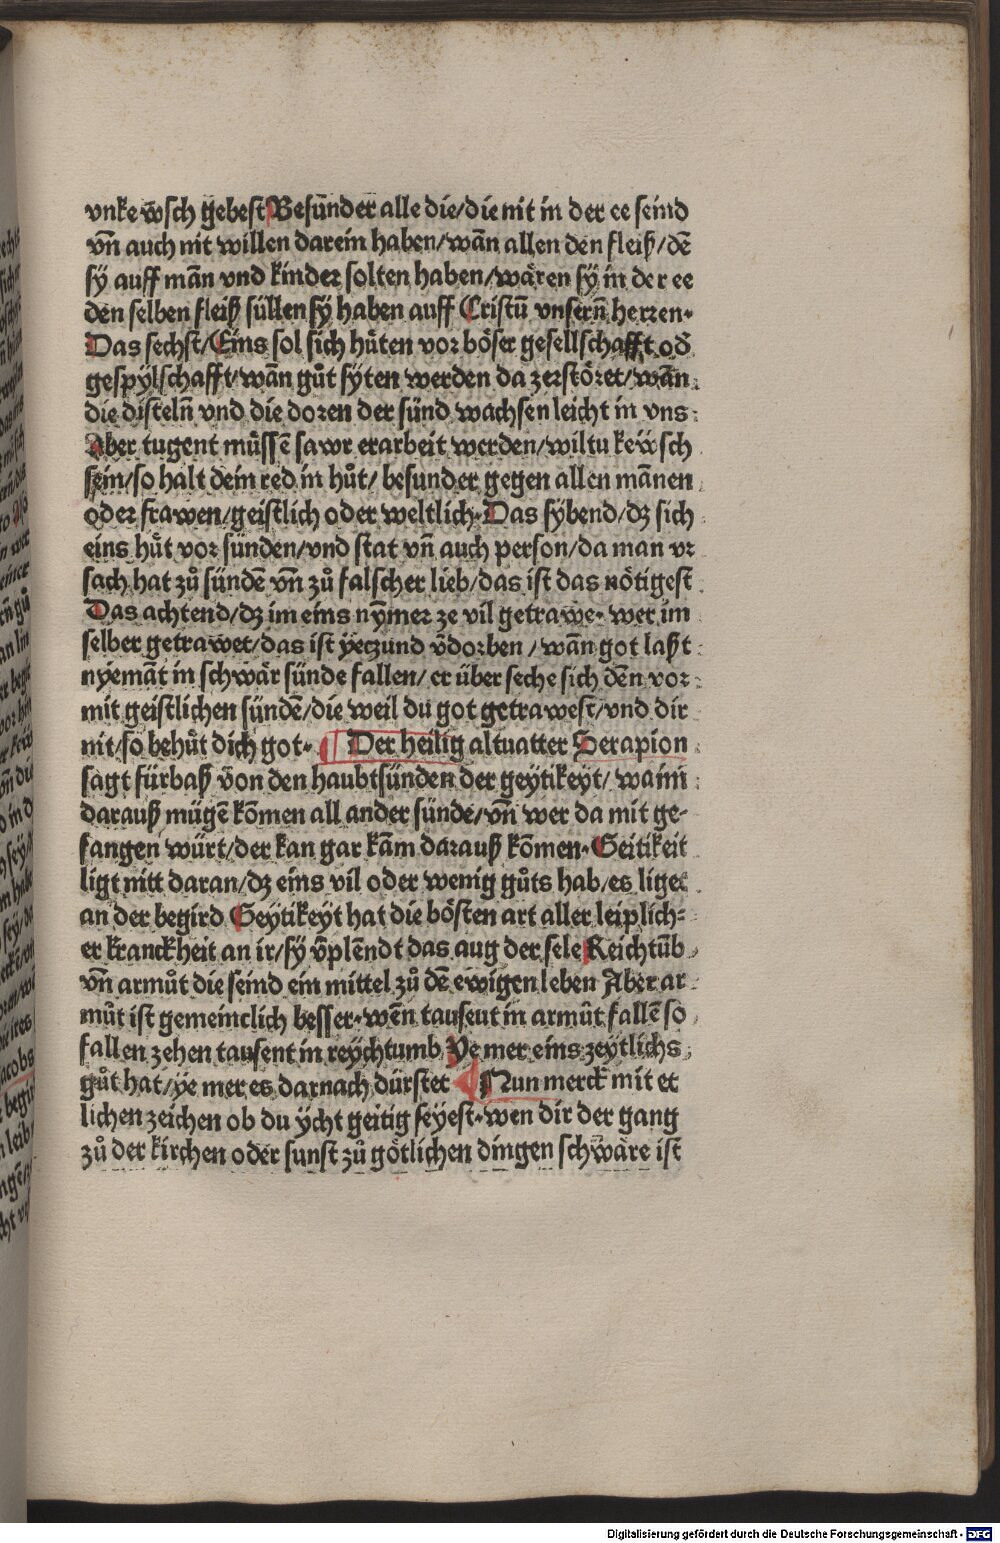 vnke wͤsch gebest Besūnder alle die/die nit in der ee seind
vn̄ auch nit willen darein haben/wān allen den fleiß/dē
sÿ auff mān vnd kinder solten haben/wären sÿ in der ee
den selben fleiß süllen sÿ haben auff Cristū vnsern̄ herren·
Das sechst/Eins sol sich hüten vor böser gesellschafft od̄
gespÿlschafft/wān gůt sÿten werden da zerstöret/wān
die disteln̄ vnd die doren der sünd wachsen leicht in vns
Aber tugent müssē sawr erarbeit werden/wiltu kewͤsch
sein/so halt dein red in hůt/ besunder gegen allen mānen
oder frawen/geistlich oder weltlich·Das sÿbend/dꝫ sich
eins hüt vor sünden/vnd stat vn̄ auch person/da man vr
sach hat zů sündē vn̄ zů falscher lieb/das ist das nötigest
Das achtend/dꝫ im eins nȳmer ze vil getrawe· wer im
selber getrawet/das ist yeczund v̄dorben/wān got laßt
nyemāt in schwär sünde fallen/er über seche sich dēn vor
mit geistlichen sündē/die weil du got getrawest/vnd dir
nit/so behüt dich got· Der heilig altuatter Serapion
sagt fürbaß von den haubtsünden der geÿtikeÿt/ wann
darauß mügē kōmen all ander sünde/vn̄ wer da mit ge-
fangen würt/der kan gar kām darauß kōmen·Geitikeit
ligt nitt daran/dꝫ eins vil oder wenig gůts hab/es liget
an der begird Geÿtikeÿt hat die bösten art aller leiplich-
er kranckheit an ir/sÿ v̄plēndt das aug der sele Reichtūb
vn̄ armůt die seind ein mittel zů dē ewigen leben Aber ar
můt ist gemeinclich besser·wēn tauseut in armůt fallē so
fallen zehen tausent in reÿchtumb Ye mer eins zeytlichs
gůt hat/ye mer es darnach dürstet Nun merck mit et
lichen zeichen ob du ÿcht geitig seÿest·wen dir der gang
zů der kirchen oder sunst zů götlichen dingen schwäre ist
Digitalisierung gefördert durch die Deutsche Forschungsgemeinschaft - DFG